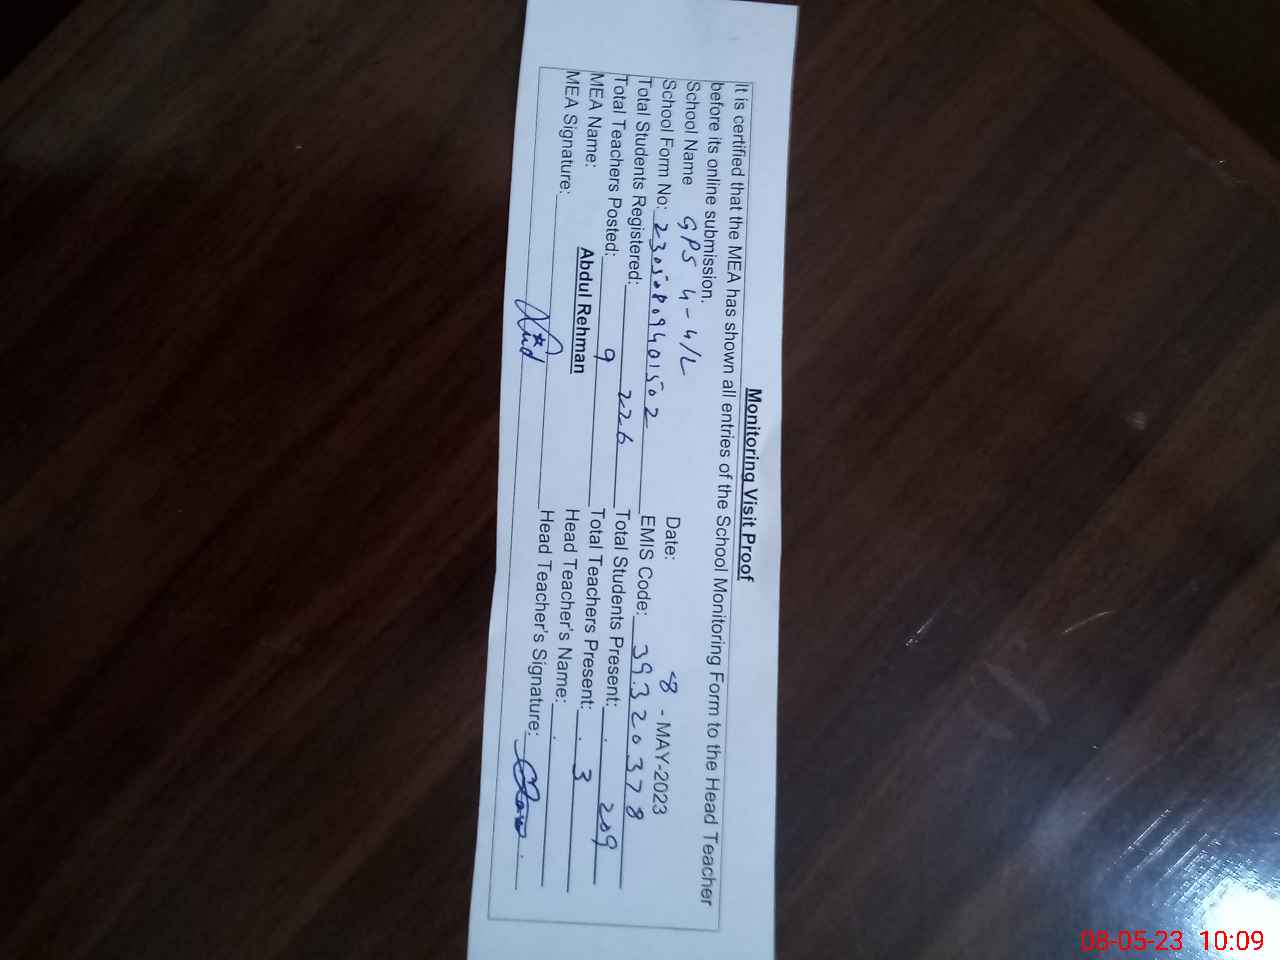 Monitoring Visit Proof
It is certified that the MEA has shown all entries of the School Monitoring Form to the Head Teacher
before its online submission.
School Name GPS 4-4/L Date: 8 - MAY-2023
School Form No: 23050809401502 EMIS Code: 39320378
Total Students Registered: 226 Total Students Present: 209
Total Teachers Posted: 9 Total Teachers Present: 3
MEA Name: Abdul Rehman Head Teacher's Name:
MEA Signature: Head Teacher's Signature:
08-05-23 10:09